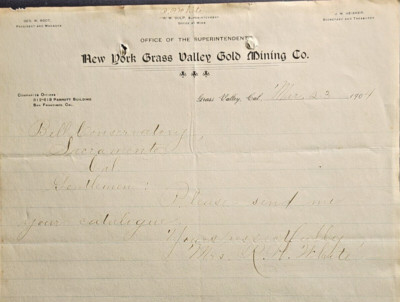 GEO. W. ROOT,
PRESIDENT AND MANAGER
W. W. GULP, SUPERINTENDENT
OFFICE AT MINE
SECRETARY AND TREASURER
OFFICE OF THE SUPERINTENDENT
New York Grass Valley Gold Mining Co.
COMPANY'S OFFICES
PARROTT BUILDING
SAN FRANCISCO, CAL.
Grass Valley, Cal. 23 1904
Bell Conservatory,
Sacramento
Cal
Gentlemen:
Please send me
your catalogue
Yours respectfully
Mrs. White